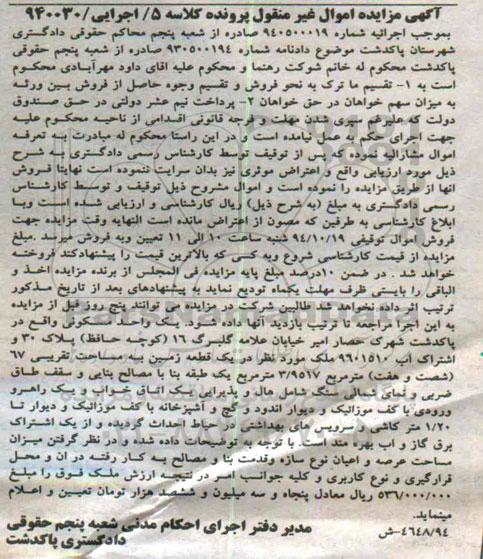 آگهی مزایده اموال غیر منقول پرونده کلاسه ۵/ اجرایی/۹۴۰۰۳۰
بموجب اجرائیه شماره ۹۴۰۵۰۰۰۱۹ صادره از شعبه پنجم محاکم حقوقی دادگستری
شهرستان پاکدشت موضوع دادنامه شماره ۹۳۰۵۰۰۱۹۴ صادره از شعبه پنجم حقوقی
پاکدشت محکوم له خانم شوکت رهنما و محکوم علیه اقای داود مهرآبادی محکوم
است به ۱- تقسیم ما ترک به نحو فروش و تقسیم وجوه حاصل از فروش بین ورثه
به میزان سهم خواهان در حق خواهان ۲- پرداخت نیم عشر دولتی در حق صندوق
دولت که علیرغم سپری شدن مهلت و فرجه قانونی اقدامی از ناحیه محکوم علیه
جهت اجرای حکم به عمل نیامده است و در این راستا محکوم له مبادرت به تعرفه
اموال مشارالیه نموده که پس از توقیف توسط کارشناس رسمی دادگستری به شرح
ذیل مورد ارزیابی واقع و اعتراض موثری نیز بدان سرایت ننموده است نهایتا فروش
انها از طریق مزایده را نموده است و اموال مشروح ذیل توقیف و توسط کارشناس
رسمی دادگستری به مبلغ (به شرح ذیل) ریال کارشناسی و ارزیابی شده است وبا
ابلاغ کارشناسی به طرفین که مصون از اعتراض مانده است النهایه وقت مزایده جهت
فروش اموال توقیفی ۹۴/۱۰/۱۹ شنبه ساعت ۱۰ الی ۱۱ تعیین وبه فروش میرسد .مبلغ
مزایده از قیمت کارشناسی شروع وبه کسی که بالاترین قیمت را پیشنهادکند فروخته
خواهد شد . در ضمن ۱۰درصد مبلغ پایه مزایده فی المجلس از برنده مزایده اخذ و
الباقی را بایستی ظرف مهلت یکماه تودیع نماید به پیشنهادهای بعد از تاریخ مذکور
ترتیب اثر داده نخواهد شد طالبین شرکت در مزایده می توانند پنج روز قبل از مزایده
به این اجرا مراجعه تا ترتیب بازدید آنها داده شود. یک واحد مسکونی واقع در
پاکدشت شهرک حصار امیر خیابان علامه گلبرگ ۱۶ (کوچه حافظ) پلاک ۳۰ و
اشتراک آب ۹۶۰۱۵۱۰ ملک مورد نظر در یک قطعه زمین به مساحت تقریبی ۶۷
(شصت و هفت) مترمربع ۳/۹۵۱۷ مترمربع یک طبقه بنا با مصالح بنایی و سقف طاق
ضربی و نمای شمالی سنگ شامل هال و پذیرایی یک اتاق خواب و یک راهرو
ورودی با کف موزائیک و دیوار اندود و گچ و آشپزخانه با کف موزائیک و دیوار تا
۱/۲۰ متر کاشی و سرویس های بهداشتی در حیاط احداث گردیده و از یک اشتراک
برق گاز و اب بهره مند است. با توجه به توضیحات داده شده و در نظر گرفتن میزان
مساحت عرصه و اعیان نوع سازه وقدمت بنا و مصالح به کار رفته در ان و محل
قرارگیری و نوع کاربری و کلیه جوانب امر در نتیجه ارزش ملک فوق را مبلغ
۵۳۶/۰۰۰/۰۰۰ ریال معادل پنجاه و سه میلیون و ششصد هزار تومان تعیین و اعلام
مینماید.
مدیر دفتر اجرای احکام مدنی شعبه پنجم حقوقی
دادگستری پاکدشت
۴۶۴۸/۹۴-ش